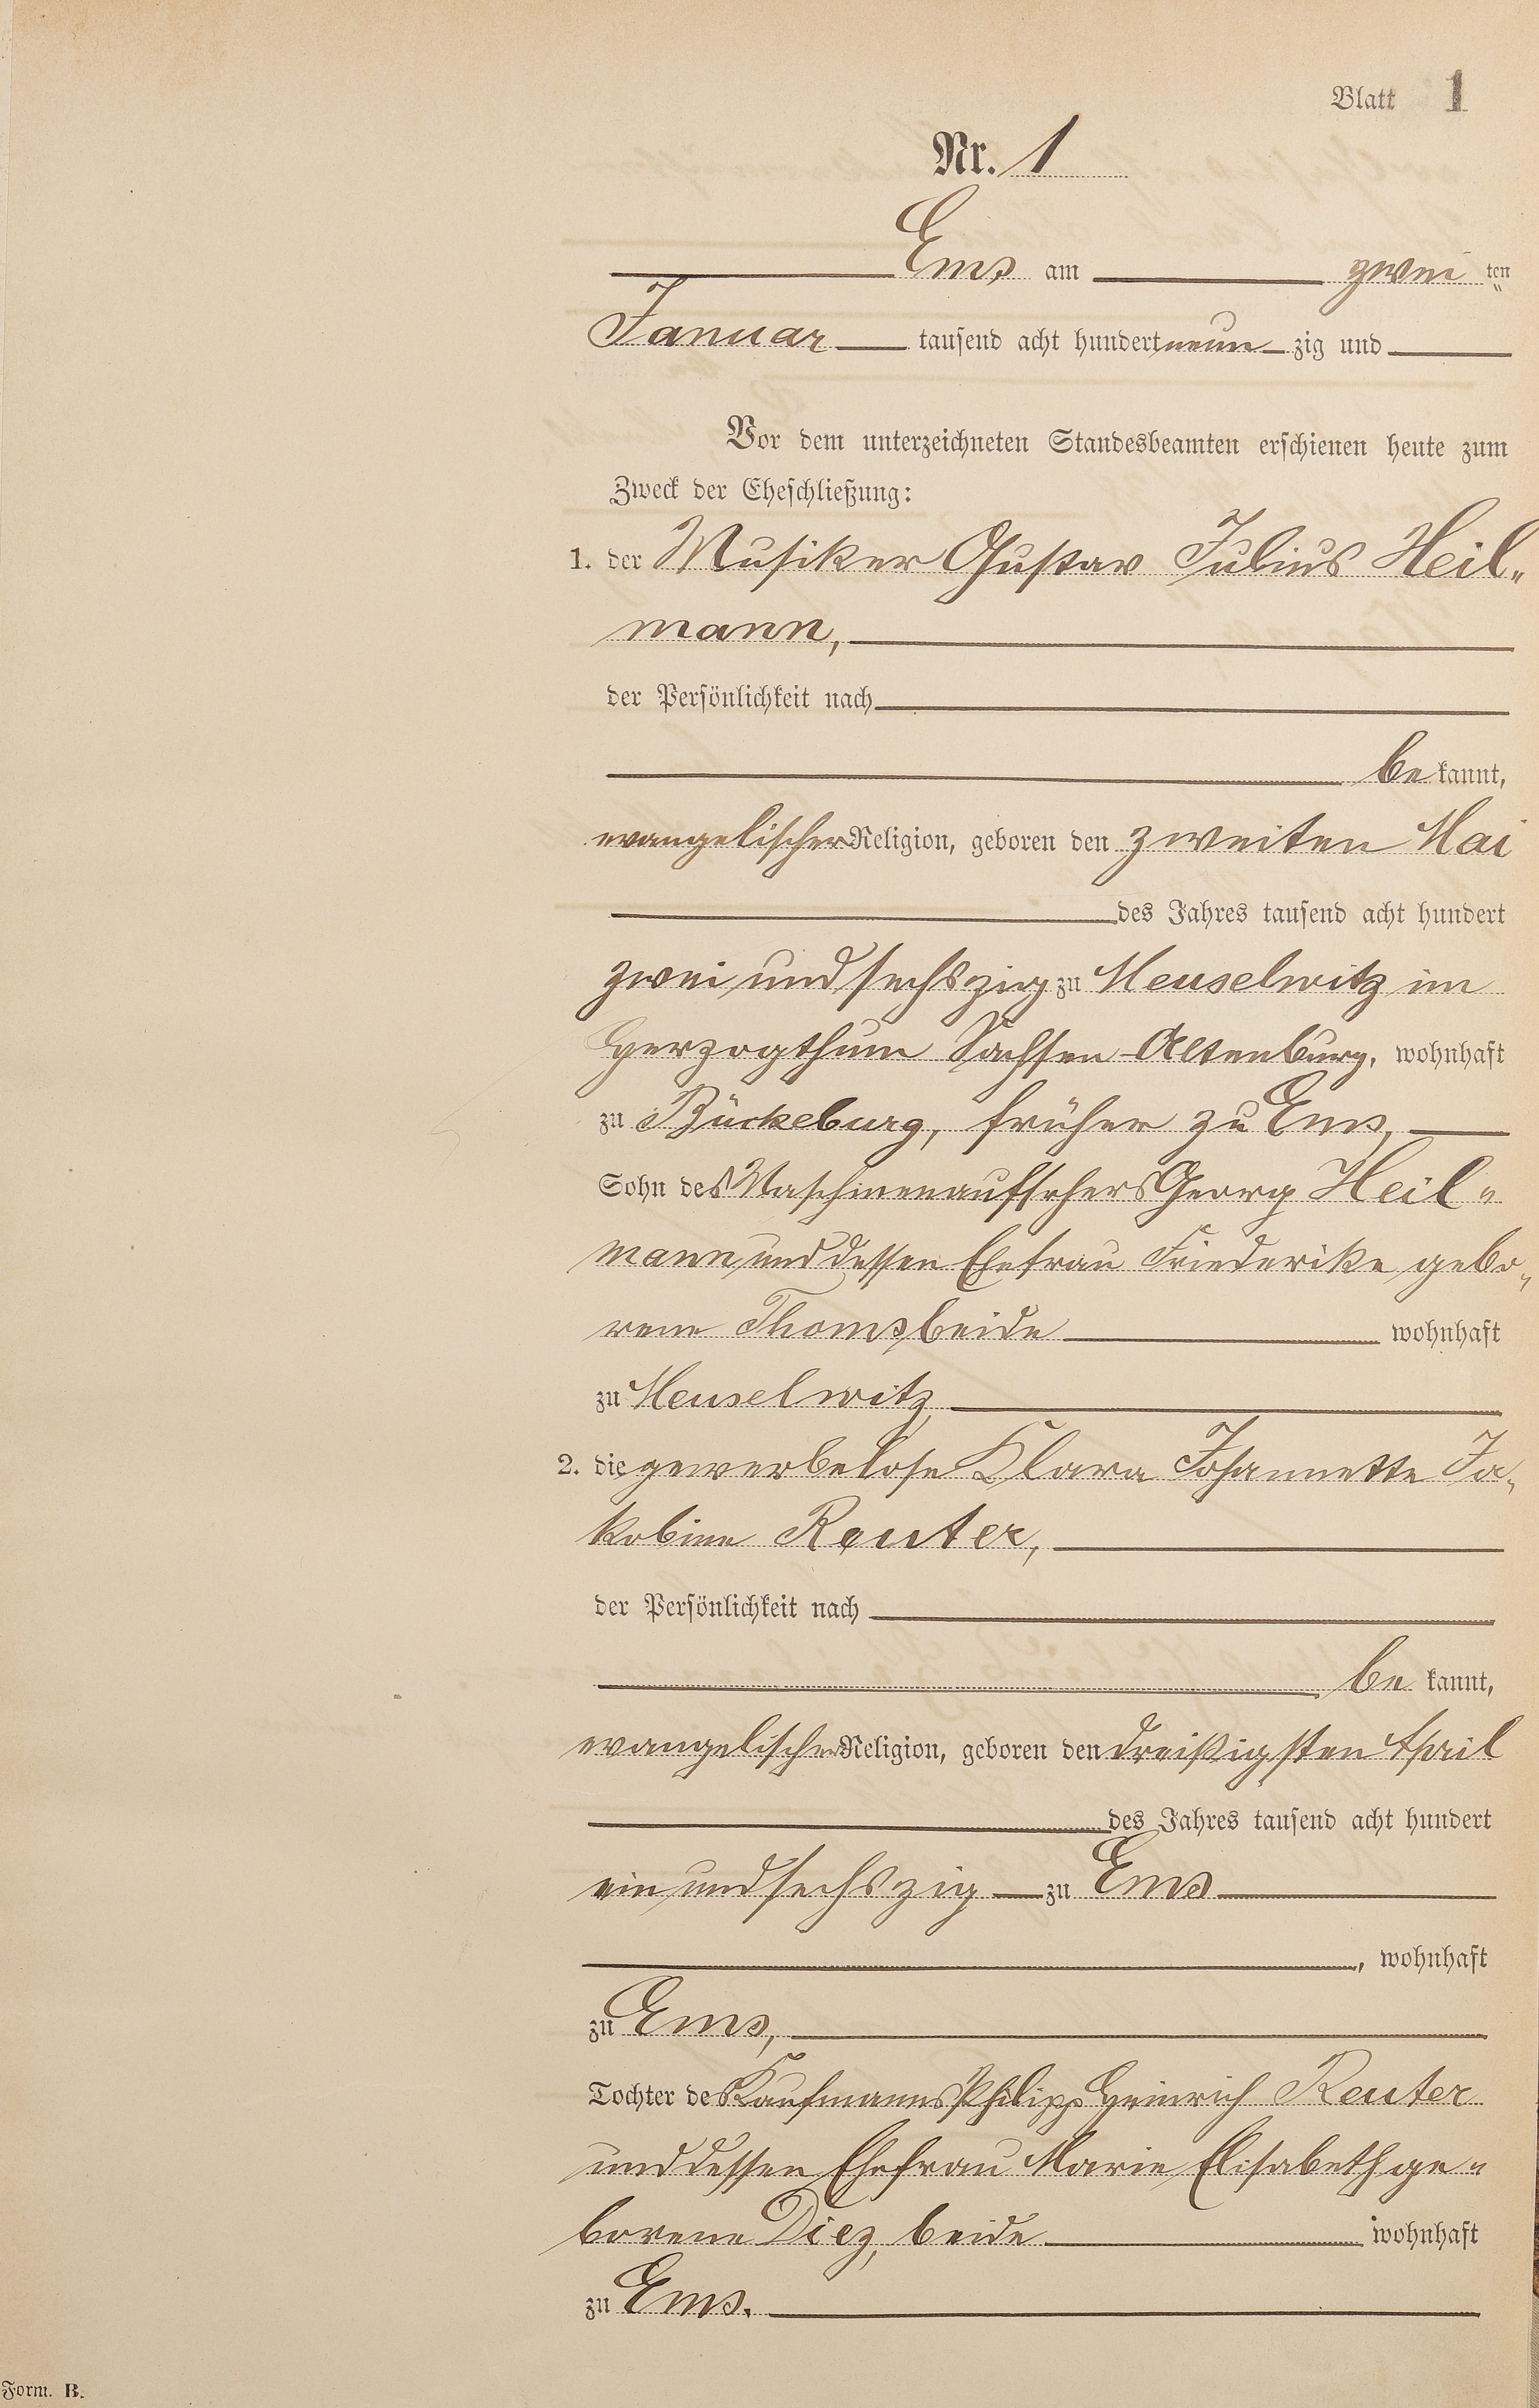 Blatt 1
Nr. 1
Ems am zwei ten
Januar tausend acht hundert neun zig und
Vor dem unterzeichneten Standesbeamten erschienen heute zum
Zweck der Eheschließung:
1. der Musiker Gustav Julius Heil-
mann,
der Persönlichkeit nach
be kannt,
evangelischer Religion, geboren den zweiten Mai
des Jahres tausend acht hundert
zwei und sechszig zu Meuselwitz im
Herzogthum Sachsen-Altenburg, wohnhaft
zu Bückeburg, früher zu Ems,
Sohn des Maschinenaufsehers Georg Heil-
mann und dessen Ehefrau Friederike gebo-
rene Thoms beide wohnhaft
zu Meuselwitz
2. die gewerbelose Klara Johannette Ja-
kobine Reuter,
der Persönlichkeit nach
be kannt,
evangelischer Religion, geboren den dreißigsten April
des Jahres tausend acht hundert
ein und sechszig zu Ems
, wohnhaft
zu Ems,
Tochter des Kaufmanns Philipp Heinrich Reuter
und dessen Ehefrau Marie Elisabeth ge-
borene Diez, beide wohnhaft
zu Ems.
Form. B.